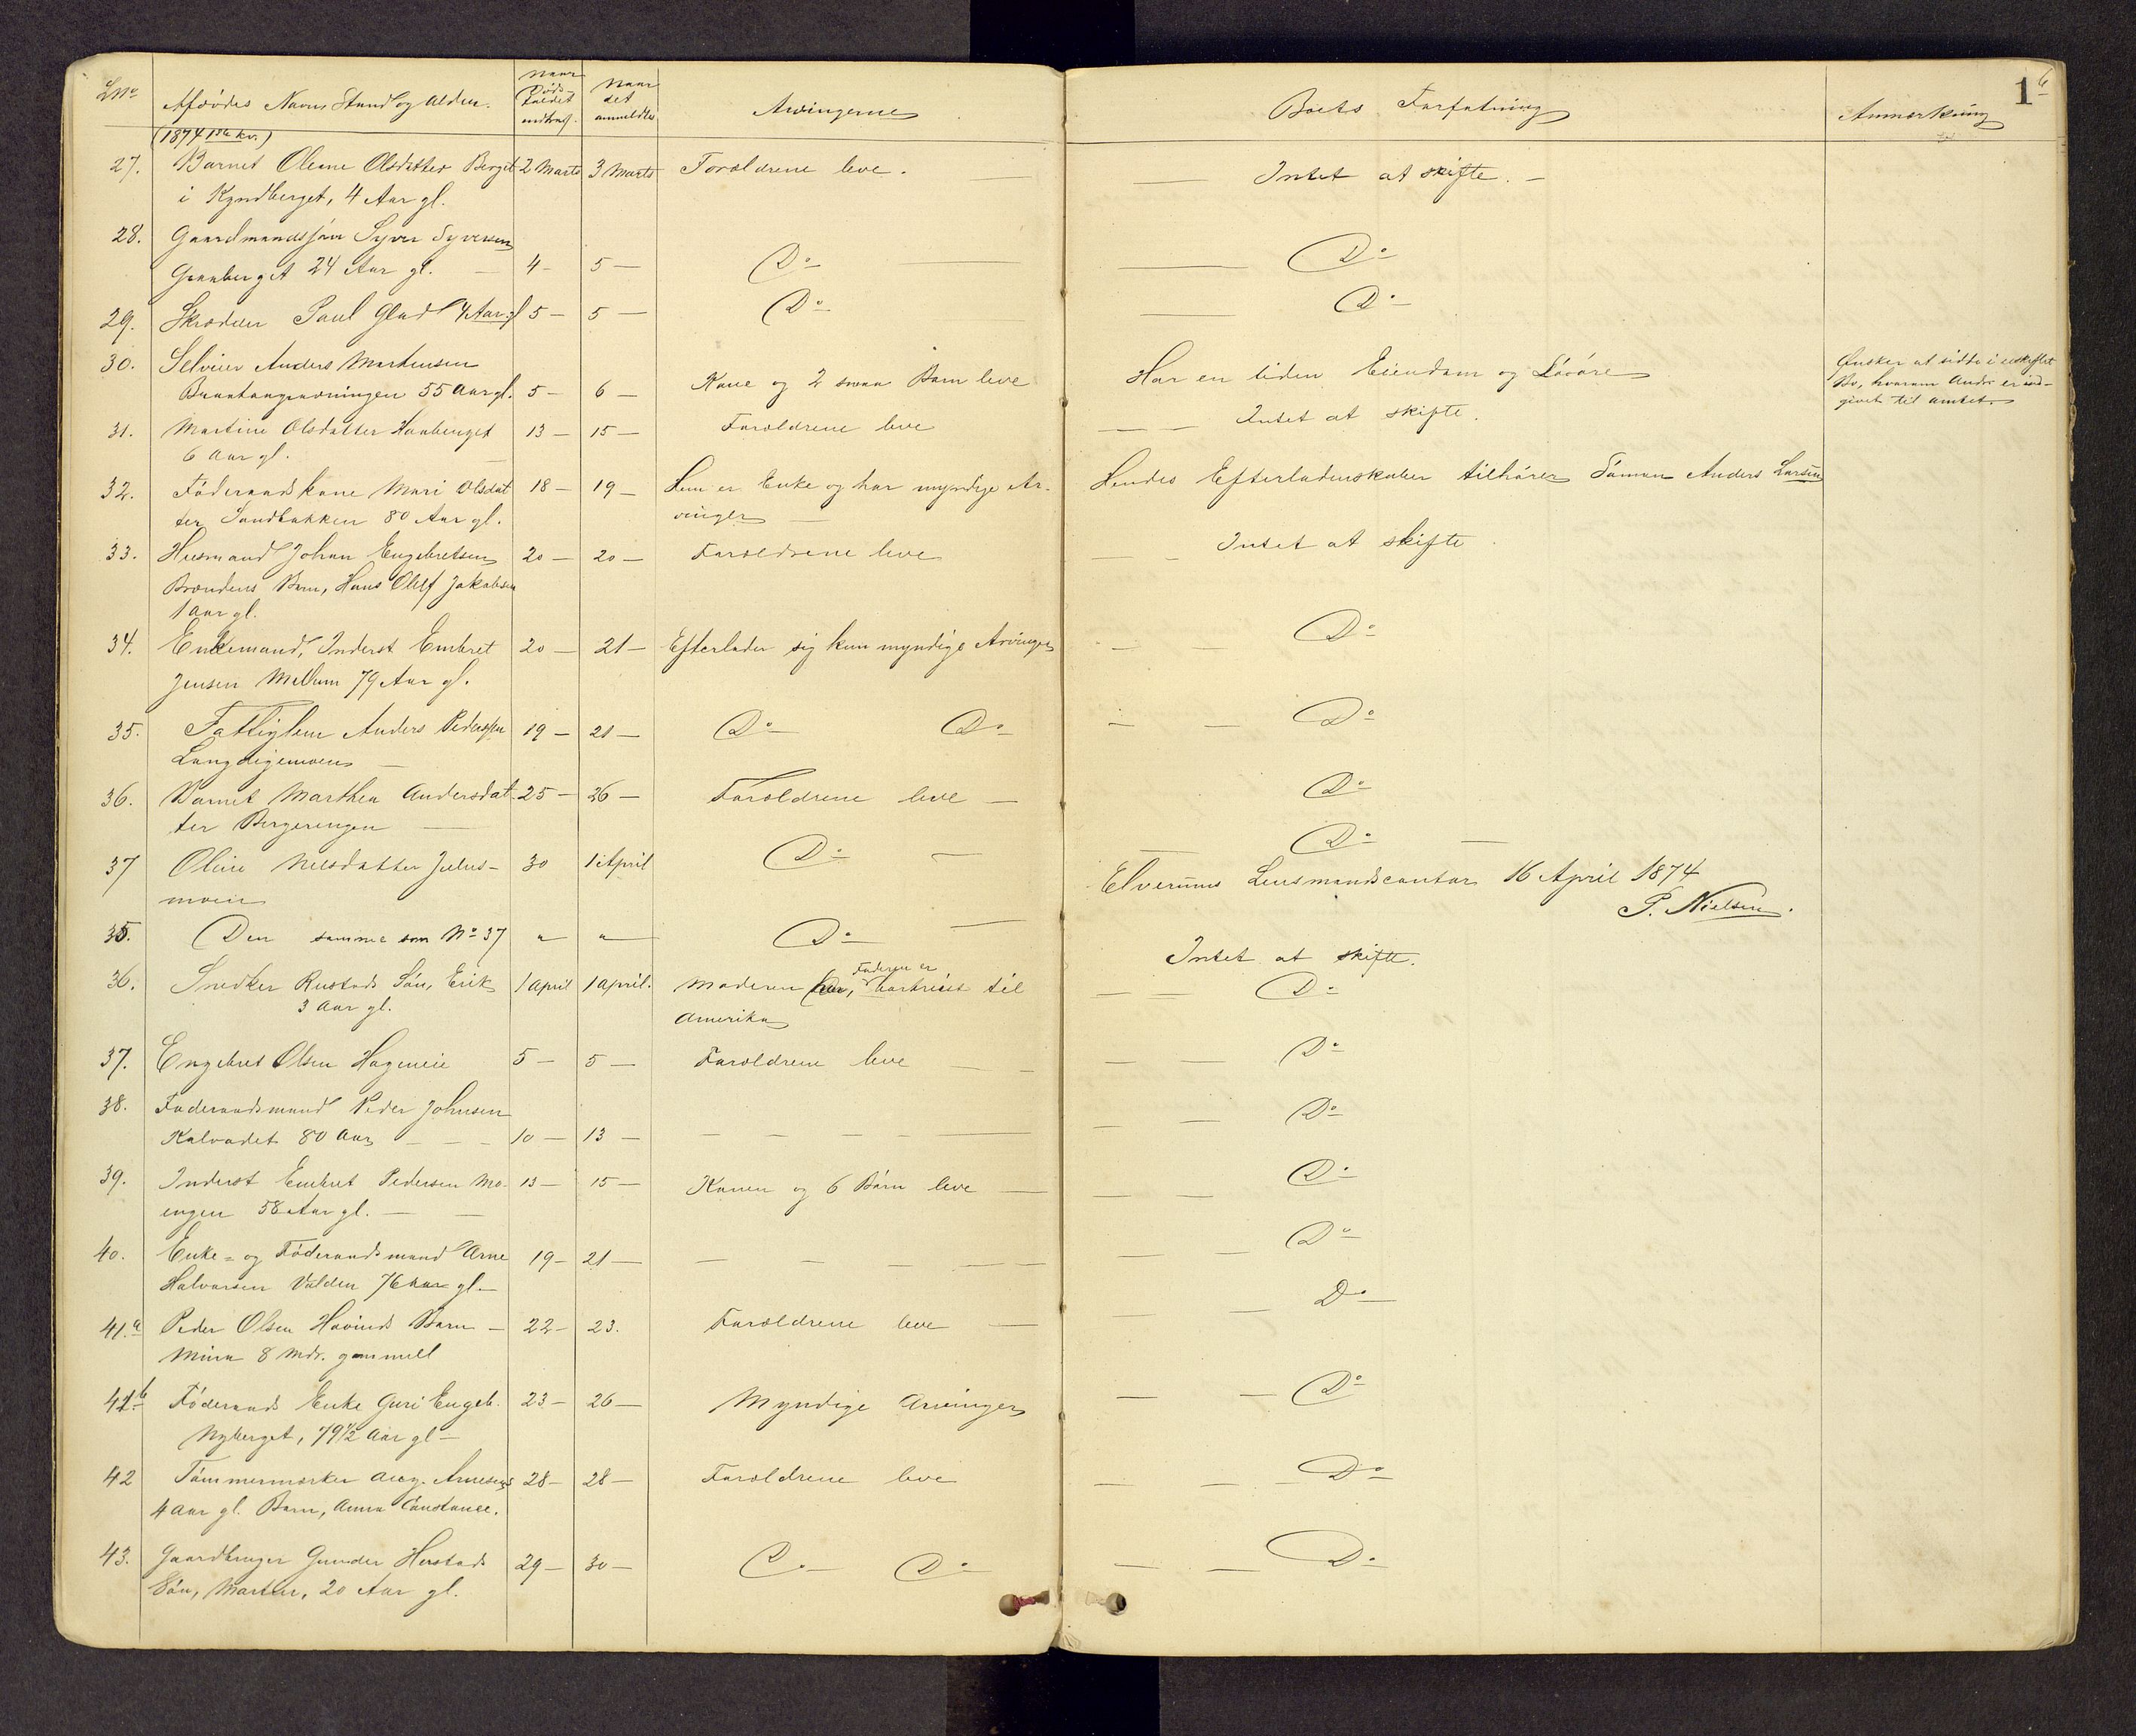 LNo
Afdødes Navn Stand og Alder.
Naar Døds-
faldet
indtraf.
Naar
det
anmeldtes
Arvingerne
Boets Forfatning
Anmærkning
1
(1874 1ste kv.)
27. Barnet Olene Olsdatter Berget 2 Marts 3 Marts Forældrene leve. — Intet at skifte. —
i Kyndberget, 4 Aar gl.
28. Gaardmandssøn Syver Syversen
Graaberget 24 Aar gl. — 4 — 5 — Do — Do
29. Skrædder Paul Glad 4 Aar gl 5 — 5 — Do — Do
30. Selveier Anders Martinsen
55 Aar gl. 5 — 6 — Kone og 2 smaa Børn leve Har en liden Eiendom og Løsøre
Ønsker at sidde i uskiftet
Bo, hvorom Andr. er ind-
givet til Amtet.
31. Martine Olsdatter Haaberget 13 — 15 — Forældrene leve — Intet at skifte.
6 Aar gl.
32. Føderaadskone Mari Olsdat 18 — 19 — Hun er Enke og har myndige Ar- Hendes Efterladenskaber tilhører Sønnen Anders Larsen
ter Sandbakken 80 Aar gl. vinger —
33. Husmand Johan Engebretsen 20 — 20 — Forældrene leve — Intet at skifte.
Brændens Barn, Hans Oluf Jakobsen
1 Aar gl.
34. Enkemand, Inderst Embret 20 — 21 — Efterlader sig kun myndige Arvinger — Do
Jensen Mellum 79 Aar gl.
35. Fattiglem Anders Pedersen 19 — 21 — Do Do — Do
36. Barnet Marthea Andersdat- 25 — 26 — Forældrene leve — Do
ter Bergerengen —
37 Oline Nelsdatter Julus- 30 1 April Do — Do
moen
Elverums Lensmandscontor 16 April 1874
P. Nielsen.
35. Den samme som No 37 " " Do — Intet at skifte.
36. Snedker Rustads Søn, Erik 1 April 1 April. Moderen her, Faderen er bortreist til — Do
3 Aar gl. Amerika
37. Engebret Olsen Hagmeie 5 — 5 — Forældrene leve — Do
38. Føderaadsmand Peder Johnsen
Kalvadet 80 Aar — 10 — 13 — — Do
39. Inderst Embret Pedersen Mo- 13 — 15 — Konen og 6 Børn leve — Do
engen 58 Aar gl. —
40. Enke- og Føderaadsmand Arne 19 — 21 — — Do
Halvorsen Vålden 76 Aar gl. —
41.a Peder Olsen Hovinds Barn — 22 — 23. Forældrene leve — Do
Mina 8 Mdr. gammell
41.b Føderaads Enke Guri Engeb. 23 — 26 — Myndige Arvinger — Do
Nyberget, 79½ Aar gl —
42 Tømmermærker Aug. Arnesens 28 — 28 — Forældrene leve — Do
4 Aar gl. Barn, Anna Constance.
43. Gaardbruger Gunder Herstads 29 — 30 — Do Do — Do
Søn, Martin, 20 Aar gl.